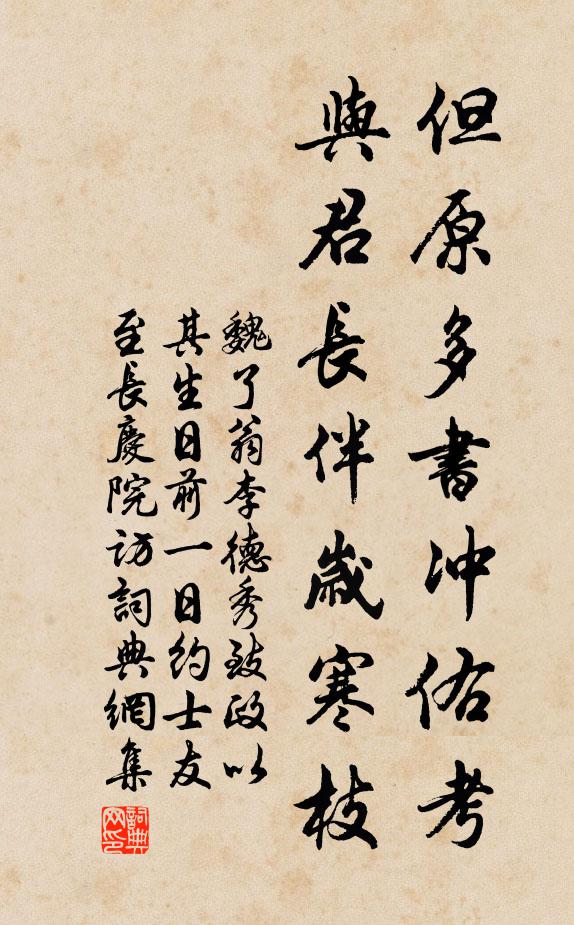 但原多書冲佑考
與君長伴歲寒枝
魏了翁李德秀致政以
其生日前一日約士友
至長慶院訪詞典網集
詞典网印